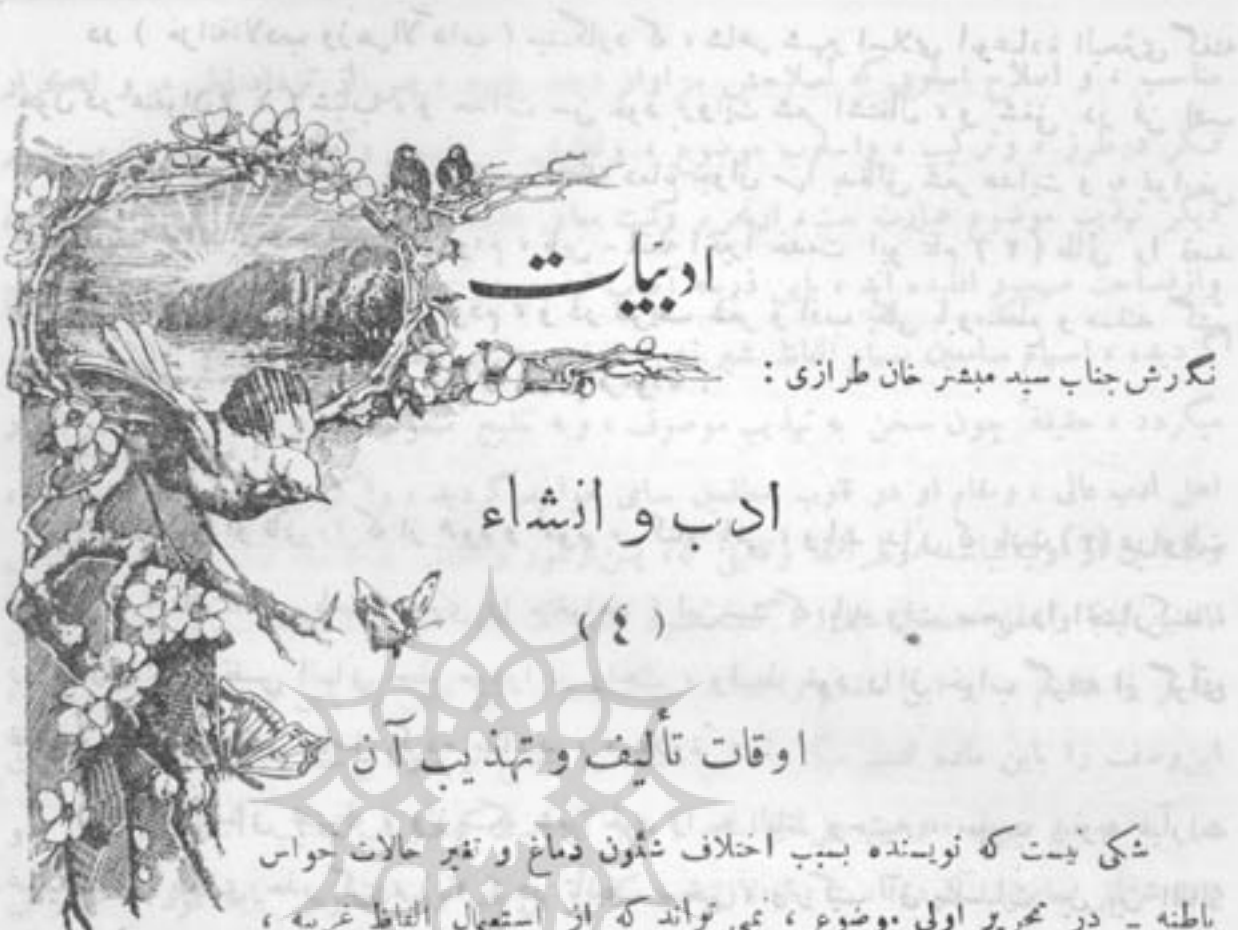 ادبیات
نگارش جناب سید مبشر خان طرازی :
ادب و انشاء
( ٤ )
اوقات تألیف و تهذیب آن
شکی نیست که نویسنده بسبب اختلاف شئون دماغ و تغیر حالات حواس
باطنه ـ در تحریر اولی موضوع ، نمی تواند که از استعمال الفاظ غریبه ،